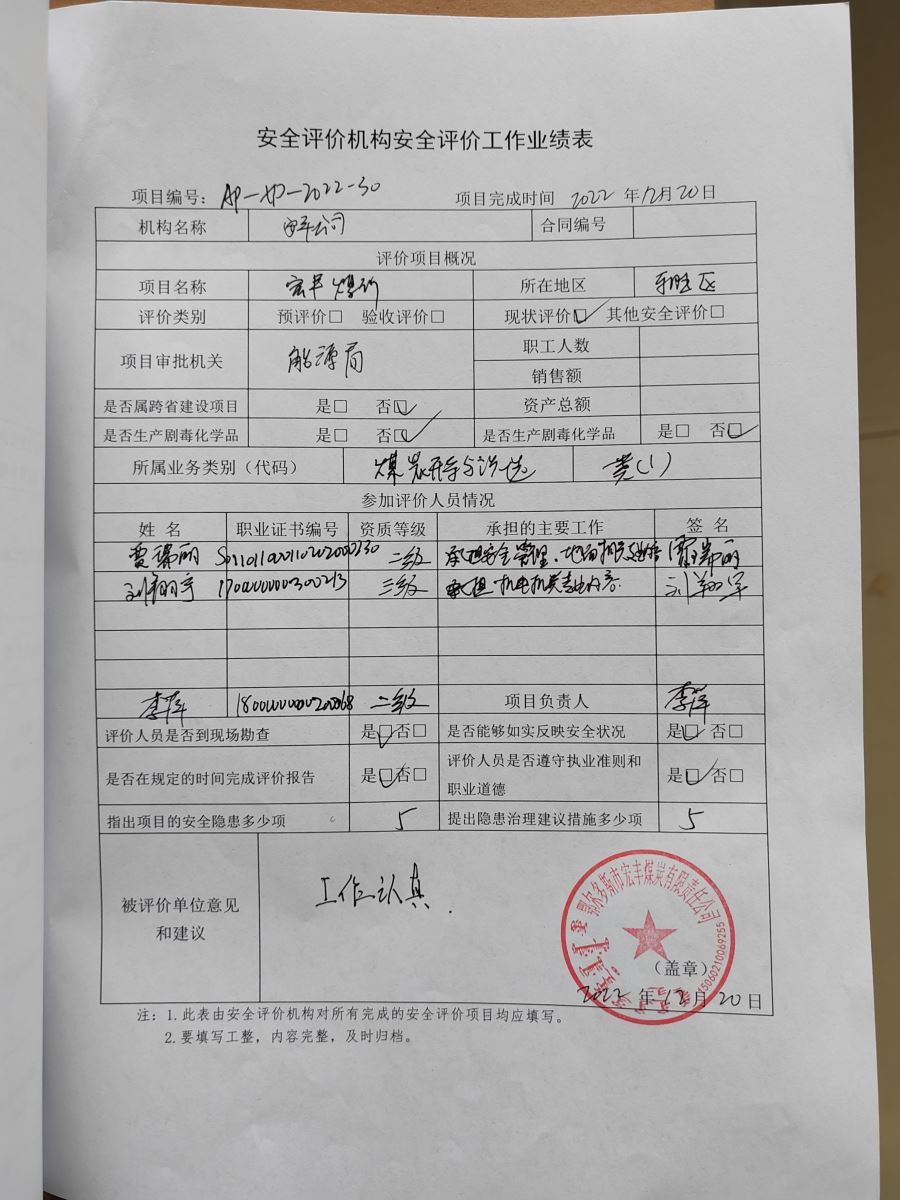 安全评价机构安全评价工作业绩表
项目编号：AP-XP-2022-30 项目完成时间 2022 年12月20日
机构名称 公司 合同编号
评价项目概况
项目名称 宏丰煤矿 所在地区 东胜区
评价类别 预评价□ 验收评价□ 现状评价☑ 其他安全评价□
项目审批机关 能源局 职工人数
销售额
是否属跨省建设项目 是□ 否☑ 资产总额
是否生产剧毒化学品 是□ 否☑ 是否生产剧毒化学品 是□ 否☑
所属业务类别（代码） 煤炭开采与洗选 类(1)
参加评价人员情况
姓 名 职业证书编号 资质等级 承担的主要工作 签 名
二级 承担安全管理、
三级 承担机电相关专业内容
李萍 二级 项目负责人 李萍
评价人员是否到现场勘查 是☑否□ 是否能够如实反映安全状况 是☑ 否□
是否在规定的时间完成评价报告 是☑否□ 评价人员是否遵守执业准则和职业道德 是☑ 否□
指出项目的安全隐患多少项 5 提出隐患治理建议措施多少项 5
被评价单位意见和建议 工作认真.
鄂尔多斯市宏丰煤炭有限责任公司
15060210069255
（盖章）
2022 年12月20日
注：1.此表由安全评价机构对所有完成的安全评价项目均应填写。
2.要填写工整，内容完整，及时归档。